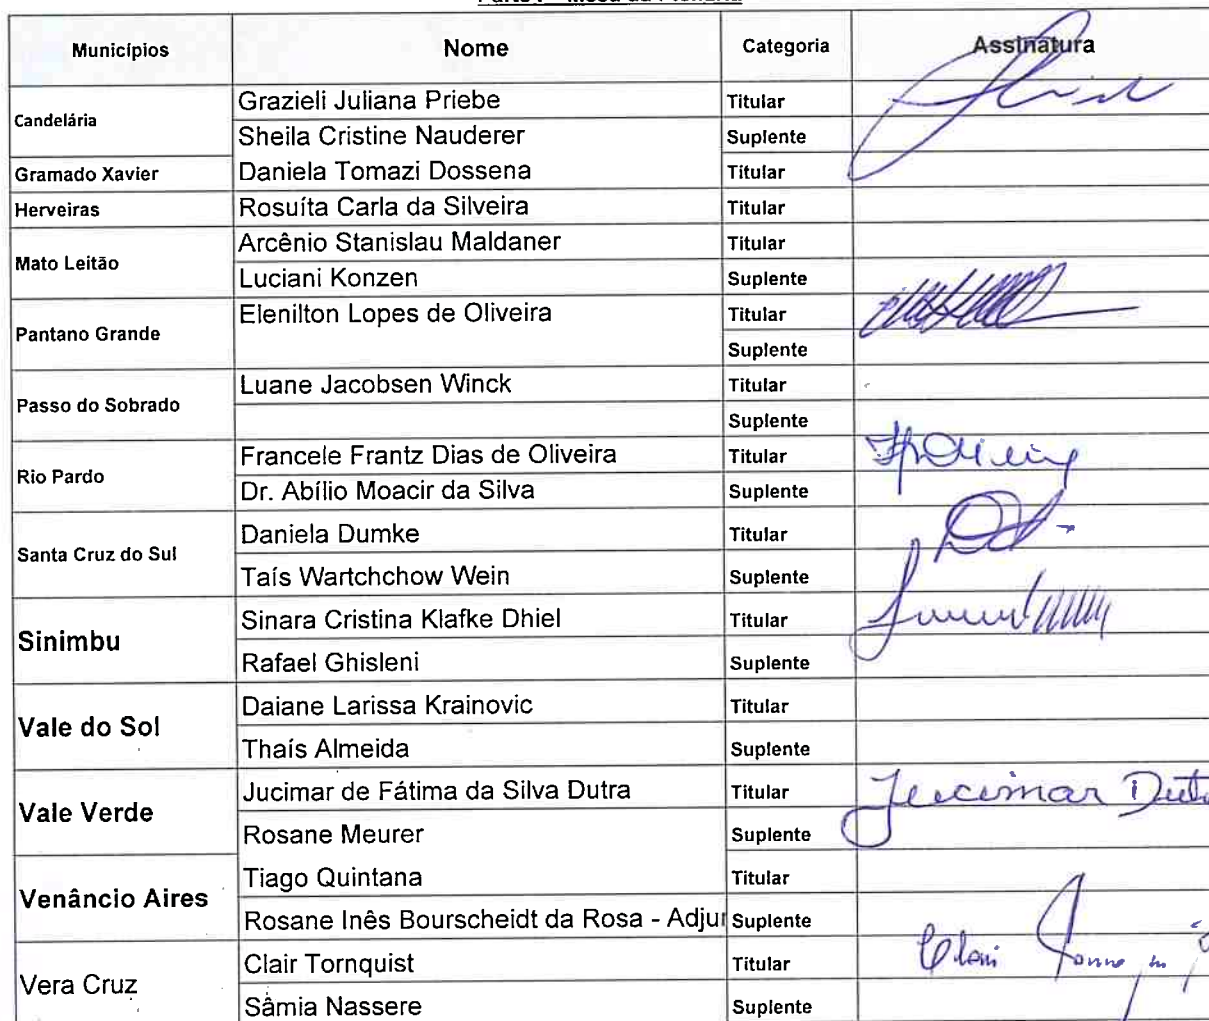 Municípios Nome Categoria Assinatura
Candelária Grazieli Juliana Priebe Titular
Sheila Cristine Nauderer Suplente
Gramado Xavier Daniela Tomazi Dossena Titular
Herveiras Rosuíta Carla da Silveira Titular
Mato Leitão Arcênio Stanislau Maldaner Titular
Luciani Konzen Suplente
Pantano Grande Elenilton Lopes de Oliveira Titular
Suplente
Passo do Sobrado Luane Jacobsen Winck Titular
Suplente
Rio Pardo Francele Frantz Dias de Oliveira Titular
Dr. Abílio Moacir da Silva Suplente
Santa Cruz do Sul Daniela Dumke Titular
Taís Wartchchow Wein Suplente
Sinimbu Sinara Cristina Klafke Dhiel Titular
Rafael Ghisleni Suplente
Vale do Sol Daiane Larissa Krainovic Titular
Thaís Almeida Suplente
Vale Verde Jucimar de Fátima da Silva Dutra Titular Jucimar
Rosane Meurer Suplente
Venâncio Aires Tiago Quintana Titular
Rosane Inês Bourscheidt da Rosa - Adjur Suplente
Vera Cruz Clair Tornquist Titular
Sâmia Nassere Suplente